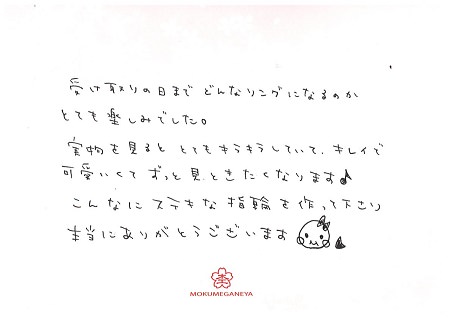 受け取りの日まで どんなリングになるのか
とても楽しみでした。
実物を見ると とてもキラキラしていて、キレイで
可愛いくて ずっと見ときたくなります♪
こんなにステキな指輪を作って下さり
本当にありがとうございます
MOKUMEGANEYA